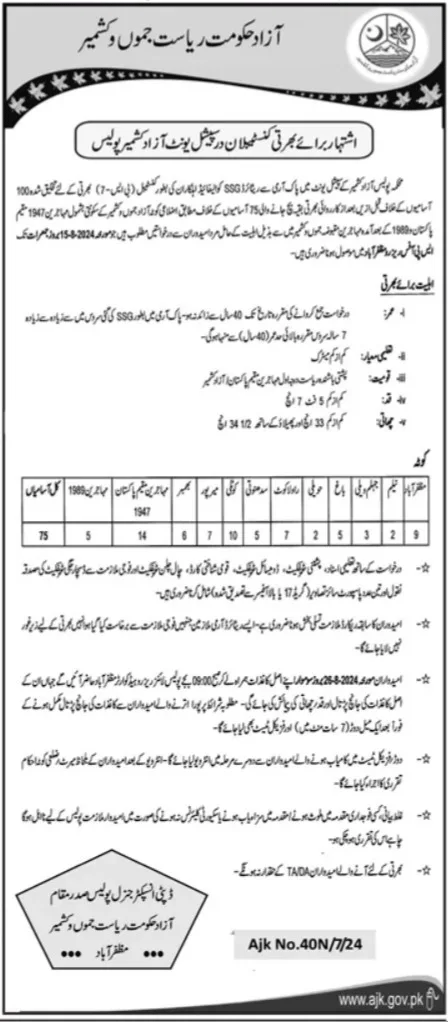 آزاد حکومت ریاست جموں و کشمیر
اشتہار برائے بھرتی کنسٹیبلان در سپیشل یونٹ آزاد کشمیر پولیس
محکمہ پولیس آزاد کشمیر کے سپیشل یونٹ میں پاک آرمی سے ریٹائرڈ SSG کوالیفائیڈ اہلکاران کی بطور کنسٹیبل (بی ایس-7) بھرتی کے لئے تخلیق شدہ 100
آسامیوں کے خلاف قبل ازیں بعد از کارروائی بھرتی بقیہ بچ جانے والی 75 آسامیوں کے خلاف مطابق اضلاعی کوٹہ آزاد جموں و کشمیر کے سکونتی بشمول مہاجرین 1947 مقیم
پاکستان و 1989 کے بعد آمدہ مہاجرین مقبوضہ جموں و کشمیر میں سے بذیل اہلیت کے حامل مرد امیدواران سے درخواستیں مطلوب ہیں جو مورخہ 15-8-2024 بروز جمعرات تک
ایس پی آفس ریزرو مظفرآباد میں موصول ہونا ضروری ہیں۔
اہلیت برائے بھرتی
i- عمر: درخواست جمع کروانے کی مقررہ تاریخ تک 40 سال سے زائد نہ ہو۔ پاک آرمی میں بطور SSG کی گئی سروس میں سے زیادہ سے زیادہ
7 سالہ سروس مقررہ بالائی حد عمر (40 سال) سے منہا ہوگی۔
ii- تعلیمی معیار: کم از کم میٹرک
iii- قومیت: پشتنی باشندہ ریاست درجہ اول مہاجرین مقیم پاکستان / آزاد کشمیر
iv- قد: کم از کم 5 فٹ 7 انچ
v- چھاتی: کم از کم 33 انچ اور پھیلاؤ کے ساتھ 34 1/2 انچ
کوٹہ
مظفرآباد نیلم جہلم ویلی باغ حویلی راولاکوٹ سدھنوتی کوٹلی میرپور بھمبر مہاجرین مقیم پاکستان 1947 مہاجرین 1989 کل آسامیاں
9 2 3 5 2 7 5 10 7 6 14 5 75
☆- درخواست کے ساتھ تعلیمی اسناد، پشتنی سرٹیفکیٹ، ڈومیسائل سرٹیفکیٹ، قومی شناختی کارڈ، چال چلن سرٹیفکیٹ اور فوجی ملازمت سے ڈسچارجنگ سرٹیفکیٹ کی مصدقہ
نقول اور تین عدد پاسپورٹ سائز تصاویر (گریڈ 17 یا بالا آفیسر سے تصدیق شدہ) شامل کرنا ضروری ہیں۔
☆- امیدواران کا سابقہ ریکارڈ ملازمت تسلی بخش ہونا ضروری ہے۔ ایسے ریٹائرڈ آرمی ملازمین جنہیں فوجی ملازمت سے برخاست کیا گیا ہو انہیں بھرتی کے لیے زیر غور
نہیں لایا جائے گا۔
☆- امیدواران مورخہ 26-8-2024 بروز سوموار اپنے اصل کاغذات ہمراہ لے کر صبح 09:00 بجے پولیس لائنز ریزرو ہیڈ کوارٹرز مظفرآباد حاضر آئیں گے جہاں ان کے
اصل کاغذات کی جانچ پڑتال اور قد و چھاتی کی پیمائش کی جائے گی۔ مطلوبہ شرائط پر پورا اترنے والے امیدواران سے کاغذات کی جانچ پڑتال مکمل ہونے کے
فوراً بعد ایک میل دوڑ (7 سات منٹ میں) اور فزیکل ٹیسٹ بھی لیا جائے گا۔
☆- دوڑ و فزیکل ٹیسٹ میں کامیاب ہونے والے امیدواران سے دوسرے مرحلہ میں انٹرویو لیا جائے گا۔ انٹرویو کے بعد امیدواران کے بلحاظ میرٹ و ضلعی کوٹہ احکام
تقرری کا اجراء کیا جائے گا۔
☆- غلط بیانی، کسی فوجداری مقدمہ میں ملوث ہونے / مقدمہ میں سزا یاب ہونے یا سیکیورٹی کلیئرنس نہ ہونے کی صورت میں امیدوار ملازمت پولیس کے لیے نااہل ہوگا
چاہے اس کی تقرری ہو چکی ہو۔
☆- بھرتی کے لئے آنے والے امیدواران TA/DA کے حقدار نہ ہونگے۔
ڈپٹی انسپکٹر جنرل پولیس صدر مقام
آزاد حکومت ریاست جموں و کشمیر
مظفرآباد
Ajk No.40N/7/24
www.ajk.gov.pk